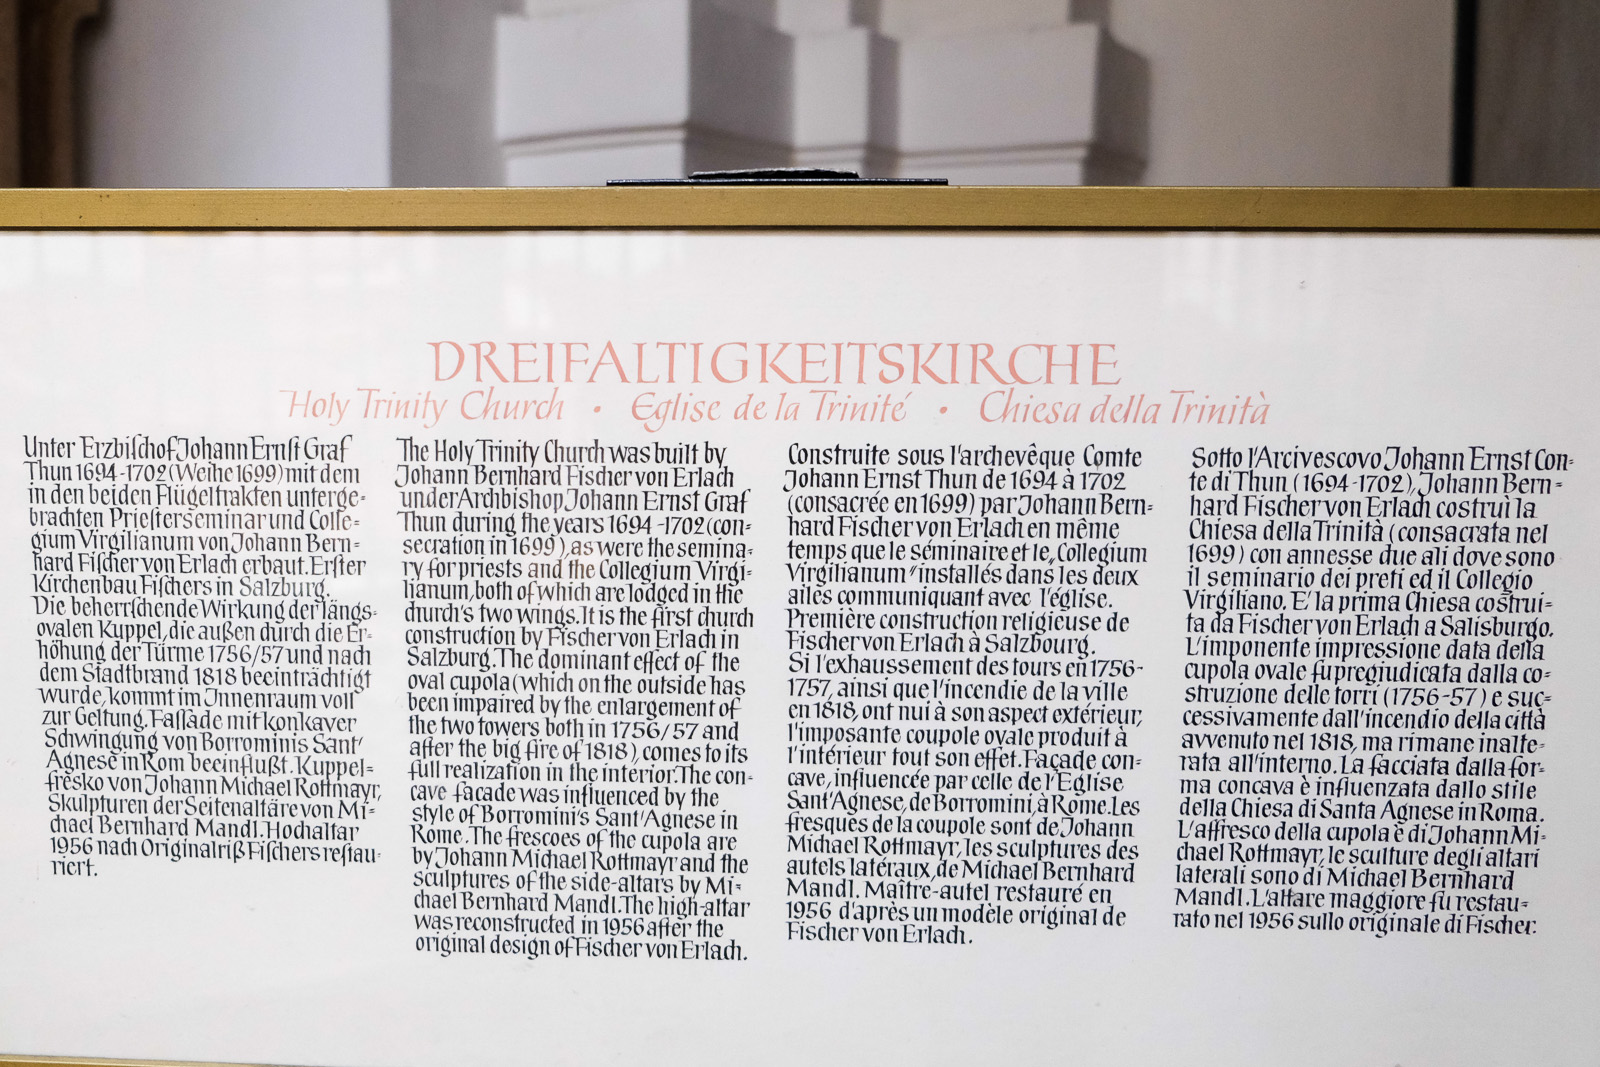 DREIFALTIGKEITSKIRCHE
Holy Trinity Church • Eglise de la Trinité • Chiesa della Trinità
Unter Erzbiſchof Johann Ernſt Graf
Thun 1694-1702 (Weihe 1699) mit dem
in den beiden Flügeltrakten unterge=
brachten Prieſterseminar und Colle=
gium Virgilianum von Johann Bern=
hard Fiſcher von Erlach erbaut. Erſter
Kirchenbau Fiſchers in Salzburg.
Die beherrſchende Wirkung der längs=
ovalen Kuppel, die außen durch die Er=
höhung der Türme 1756/57 und nach
dem Stadtbrand 1818 beeinträchtigt
wurde, kommt im Innenraum voll
zur Geltung. Faſſade mit konkaver
Schwingung von Borrominis Sant'
Agnese in Rom beeinflußt. Kuppel=
fresko von Johann Michael Rottmayr,
Skulpturen der Seitenaltäre von Mi=
chael Bernhard Mandl. Hochaltar
1956 nach Originalriß Fiſchers reſtau=
riert.
The Holy Trinity Church was built by
Johann Bernhard Fischer von Erlach
under Archbishop Johann Ernst Graf
Thun during the years 1694-1702 (con=
secration in 1699), as were the semina=
ry for priests and the Collegium Virgi=
lianum, both of which are lodged in the
church's two wings. It is the first church
construction by Fischer von Erlach in
Salzburg. The dominant effect of the
oval cupola (which on the outside has
been impaired by the enlargement of
the two towers both in 1756/57 and
after the big fire of 1818), comes to its
full realization in the interior. The con=
cave facade was influenced by the
style of Borromini's Sant'Agnese in
Rome. The frescoes of the cupola are
by Johann Michael Rottmayr and the
sculptures of the side-altars by Mi=
chael Bernhard Mandl. The high-altar
was reconstructed in 1956 after the
original design of Fischer von Erlach.
Construite sous l'archevêque Comte
Johann Ernst Thun de 1694 à 1702
(consacrée en 1699) par Johann Bern=
hard Fischer von Erlach en même
temps que le séminaire et le „Collegium
Virgilianum" installés dans les deux
ailes communiquant avec l'église.
Première construction religieuse de
Fischer von Erlach à Salzbourg.
Si l'exhaussement des tours en 1756-
1757, ainsi que l'incendie de la ville
en 1818, ont nui à son aspect extérieur,
l'imposante coupole ovale produit à
l'intérieur tout son effet. Façade con=
cave, influencée par celle de l'Eglise
Sant'Agnèse, de Borromini, à Rome. Les
fresques de la coupole sont de Johann
Michael Rottmayr, les sculptures des
autels latéraux, de Michael Bernhard
Mandl. Maître-autel restauré en
1956 d'après un modèle original de
Fischer von Erlach.
Sotto l'Arcivescovo Johann Ernst Con=
te di Thun (1694-1702), Johann Bern=
hard Fischer von Erlach costruì la
Chiesa della Trinità (consacrata nel
1699) con annesse due ali dove sono
il seminario dei preti ed il Collegio
Virgiliano. E' la prima Chiesa costrui=
ta da Fischer von Erlach a Salisburgo.
L'imponente impressione data della
cupola ovale fu pregiudicata dalla co=
struzione delle torri (1756-57) e suc=
cessivamente dall'incendio della città
avvenuto nel 1818, ma rimane inalte=
rata all'interno. La facciata dalla for=
ma concava è influenzata dallo stile
della Chiesa di Santa Agnese in Roma.
L'affresco della cupola è di Johann Mi=
chael Rottmayr, le sculture degli altari
laterali sono di Michael Bernhard
Mandl. L'altare maggiore fu restau=
rato nel 1956 sullo originale di Fischer.